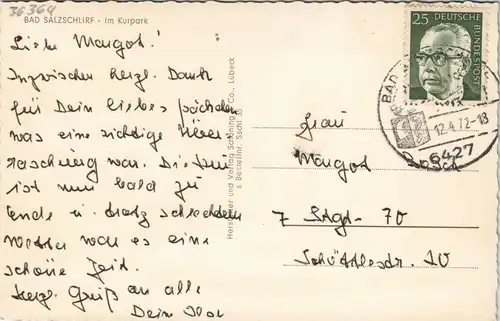 36364
BAD SALZSCHLIRF - Im Kurpark
Liebe Margot!
Inzwischen herzl. Dank
für Dein liebes Päckchen
was eine richtige Über-
raschung war. Die Kur
ist nun bald zu
Ende u. trotz schlechtem
Wetter war es eine
schöne Zeit.
Herzl. Gruß an alle
Dein
Hersteller und Verlag Schöning & Co., Lübeck
25 DEUTSCHE BUNDESPOST
BAD
12.4.72-18
6427
Frau
Margot
7 Stgt- 70
10